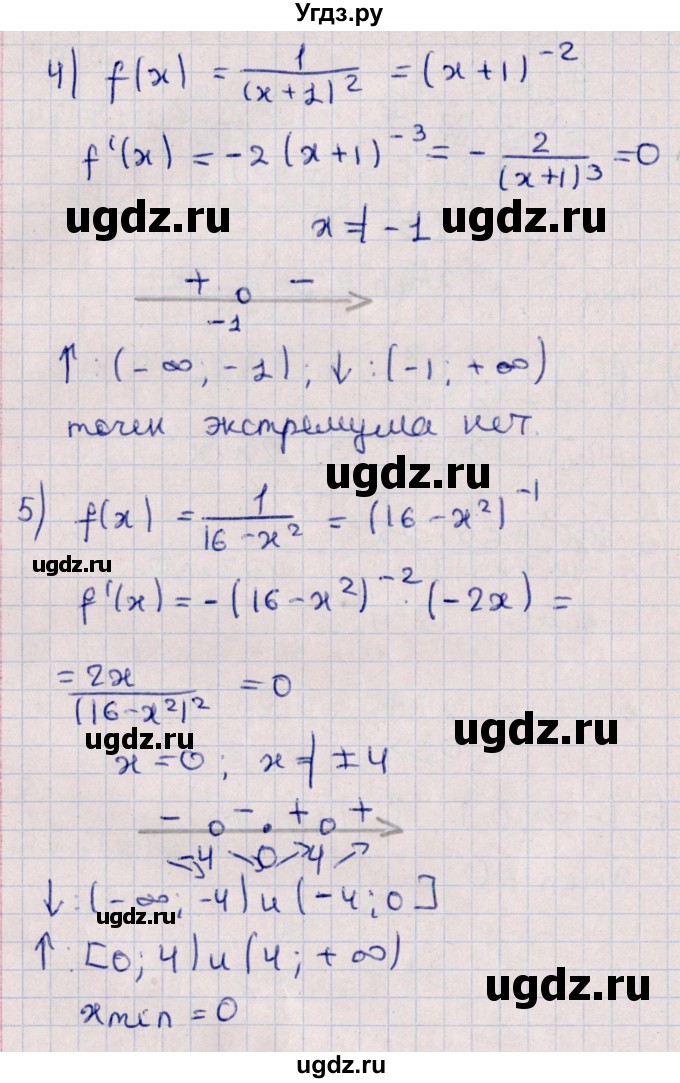 Угдз.ру
4) f(x) = 1/(x+1)^2 = (x+1)^-2
f'(x) = -2(x+1)^-3 = - 2/(x+1)^3 = 0
ugdz.ru ugdz.ru
x ≠ -1
+ -
-1
↑: (-∞; -1); ↓: (-1; +∞)
точек экстремума нет.
ugdz.ru
5) f(x) = 1/(16-x^2) = (16-x^2)^-1
ugdz.ru
f'(x) = -(16-x^2)^-2 · (-2x) =
= 2x/(16-x^2)^2 = 0
ugdz.ru ugdz.ru
x = 0; x ≠ ±4
- - + +
-4 0 4
↓: (-∞; -4) и (-4; 0]
ugdz.ru
↑: [0; 4) и (4; +∞)
ugdz.ru
xmin = 0
ugdz.ru